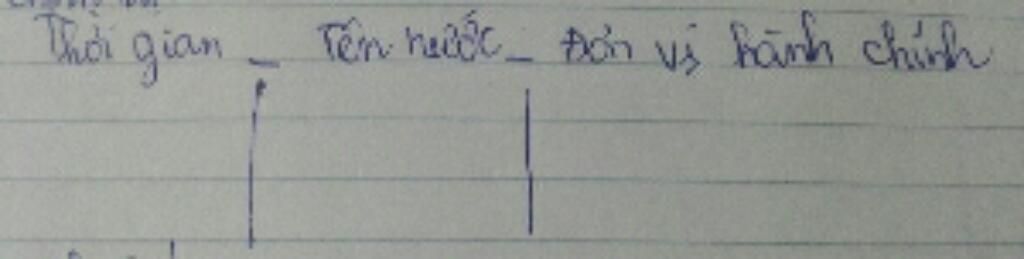 Thời gian - Tên nước - Đơn vị hành chính